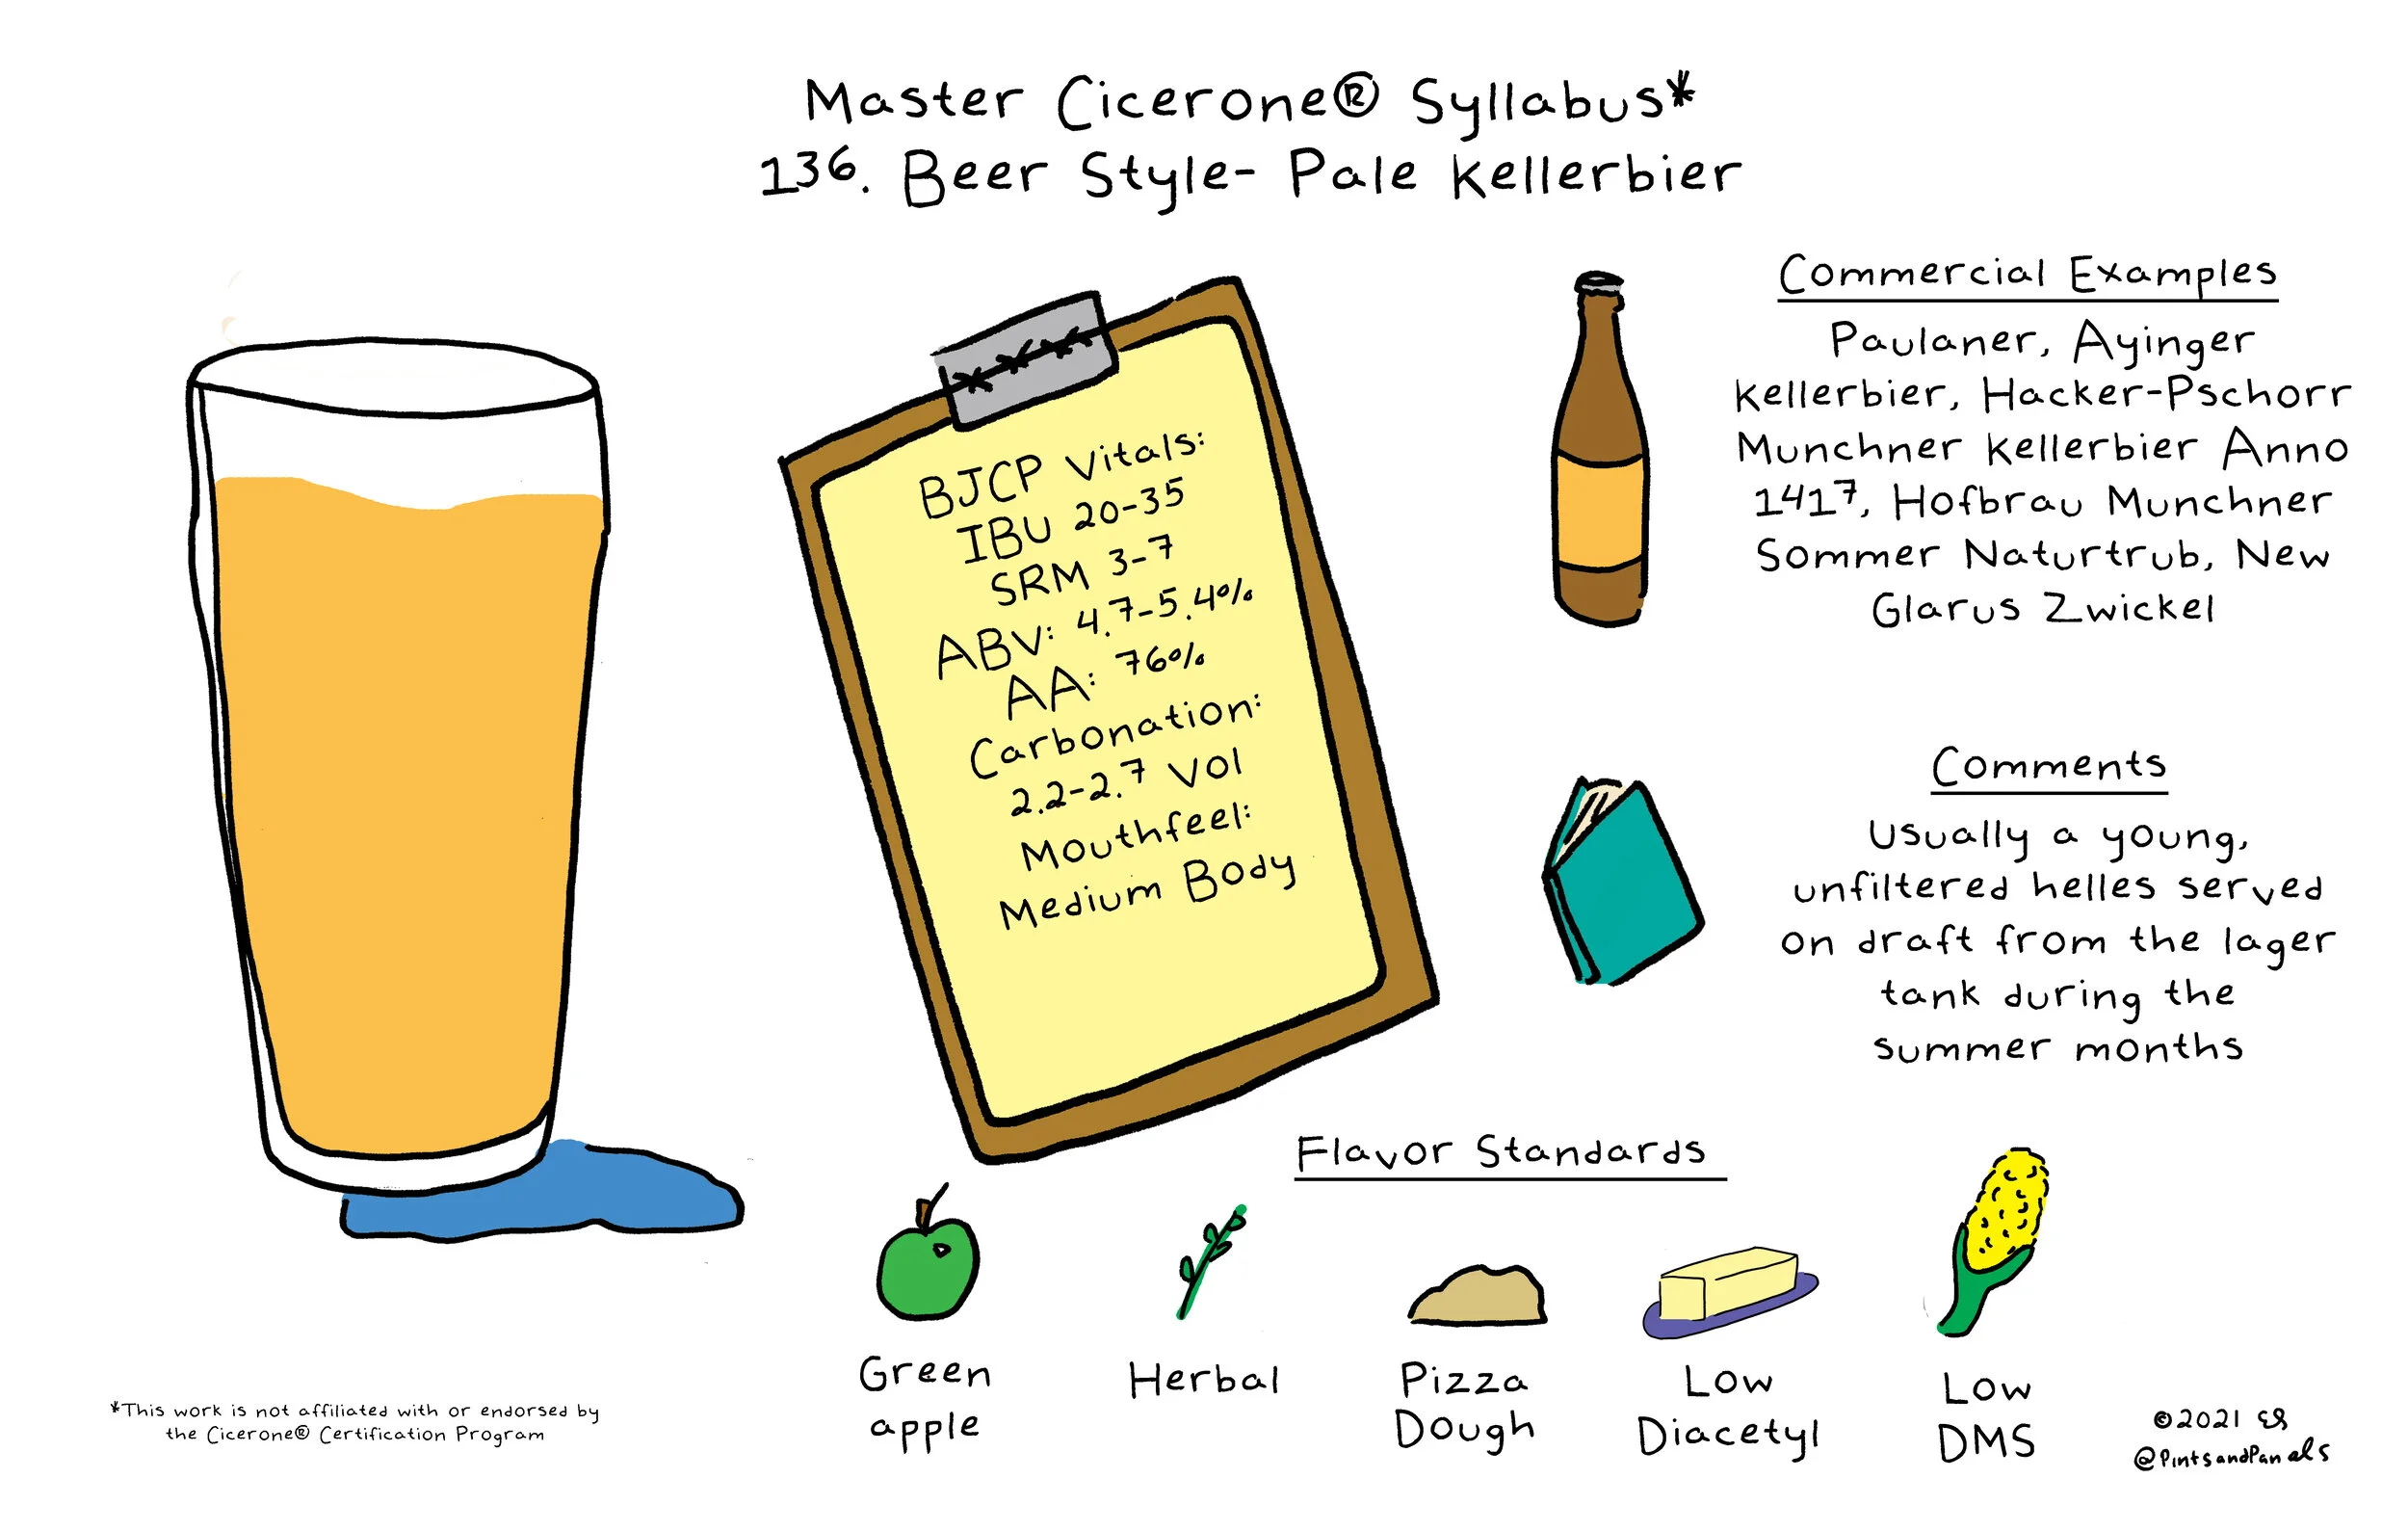 Master Cicerone® Syllabus*
136. Beer Style- Pale Kellerbier
BJCP Vitals:
IBU 20-35
SRM 3-7
ABV: 4.7-5.4%
AA: 76%
Carbonation:
2.2-2.7 vol
Mouthfeel:
Medium Body
Commercial Examples
Paulaner, Ayinger
Kellerbier, Hacker-Pschorr
Munchner Kellerbier Anno
1417, Hofbrau Munchner
Sommer Naturtrub, New
Glarus Zwickel
Comments
Usually a young,
unfiltered helles served
on draft from the lager
tank during the
summer months
Flavor Standards
Green
apple
Herbal
Pizza
Dough
Low
Diacetyl
Low
DMS
*This work is not affiliated with or endorsed by
the Cicerone® Certification Program
©2021 
@PintsandPanels